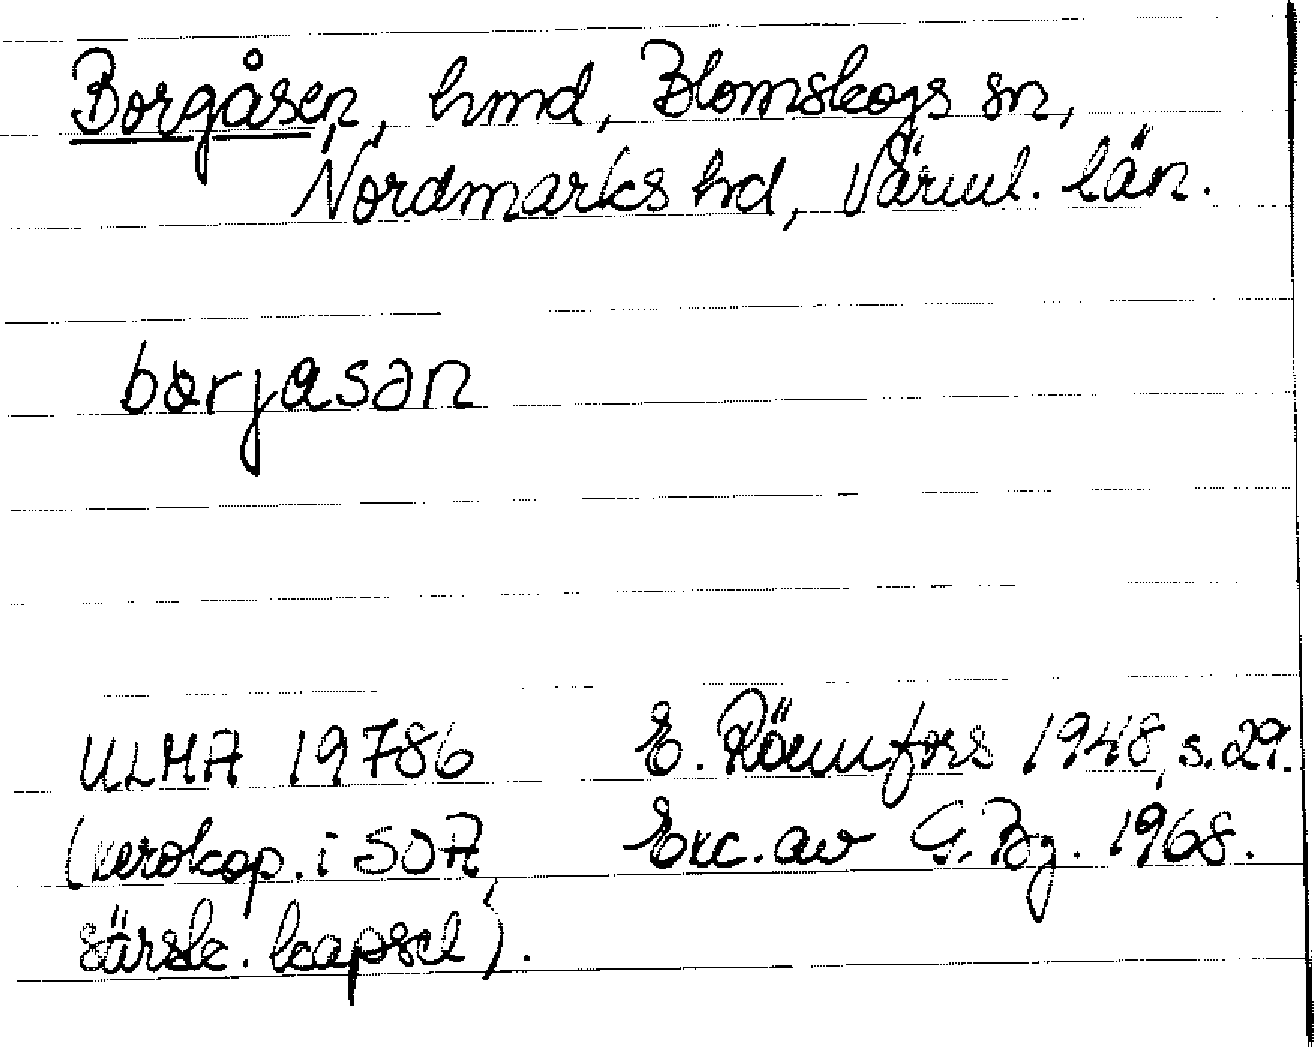 Borgåsen, hmd, Blomskogs sn,
Nordmarks hd, Värml. län.
bɵrjasən
ULMA 19786
E. Römfors 1948, s. 29.
(xerokop. i SOA,
Exc. av G. Bg. 1968.
särsk. kapsel).